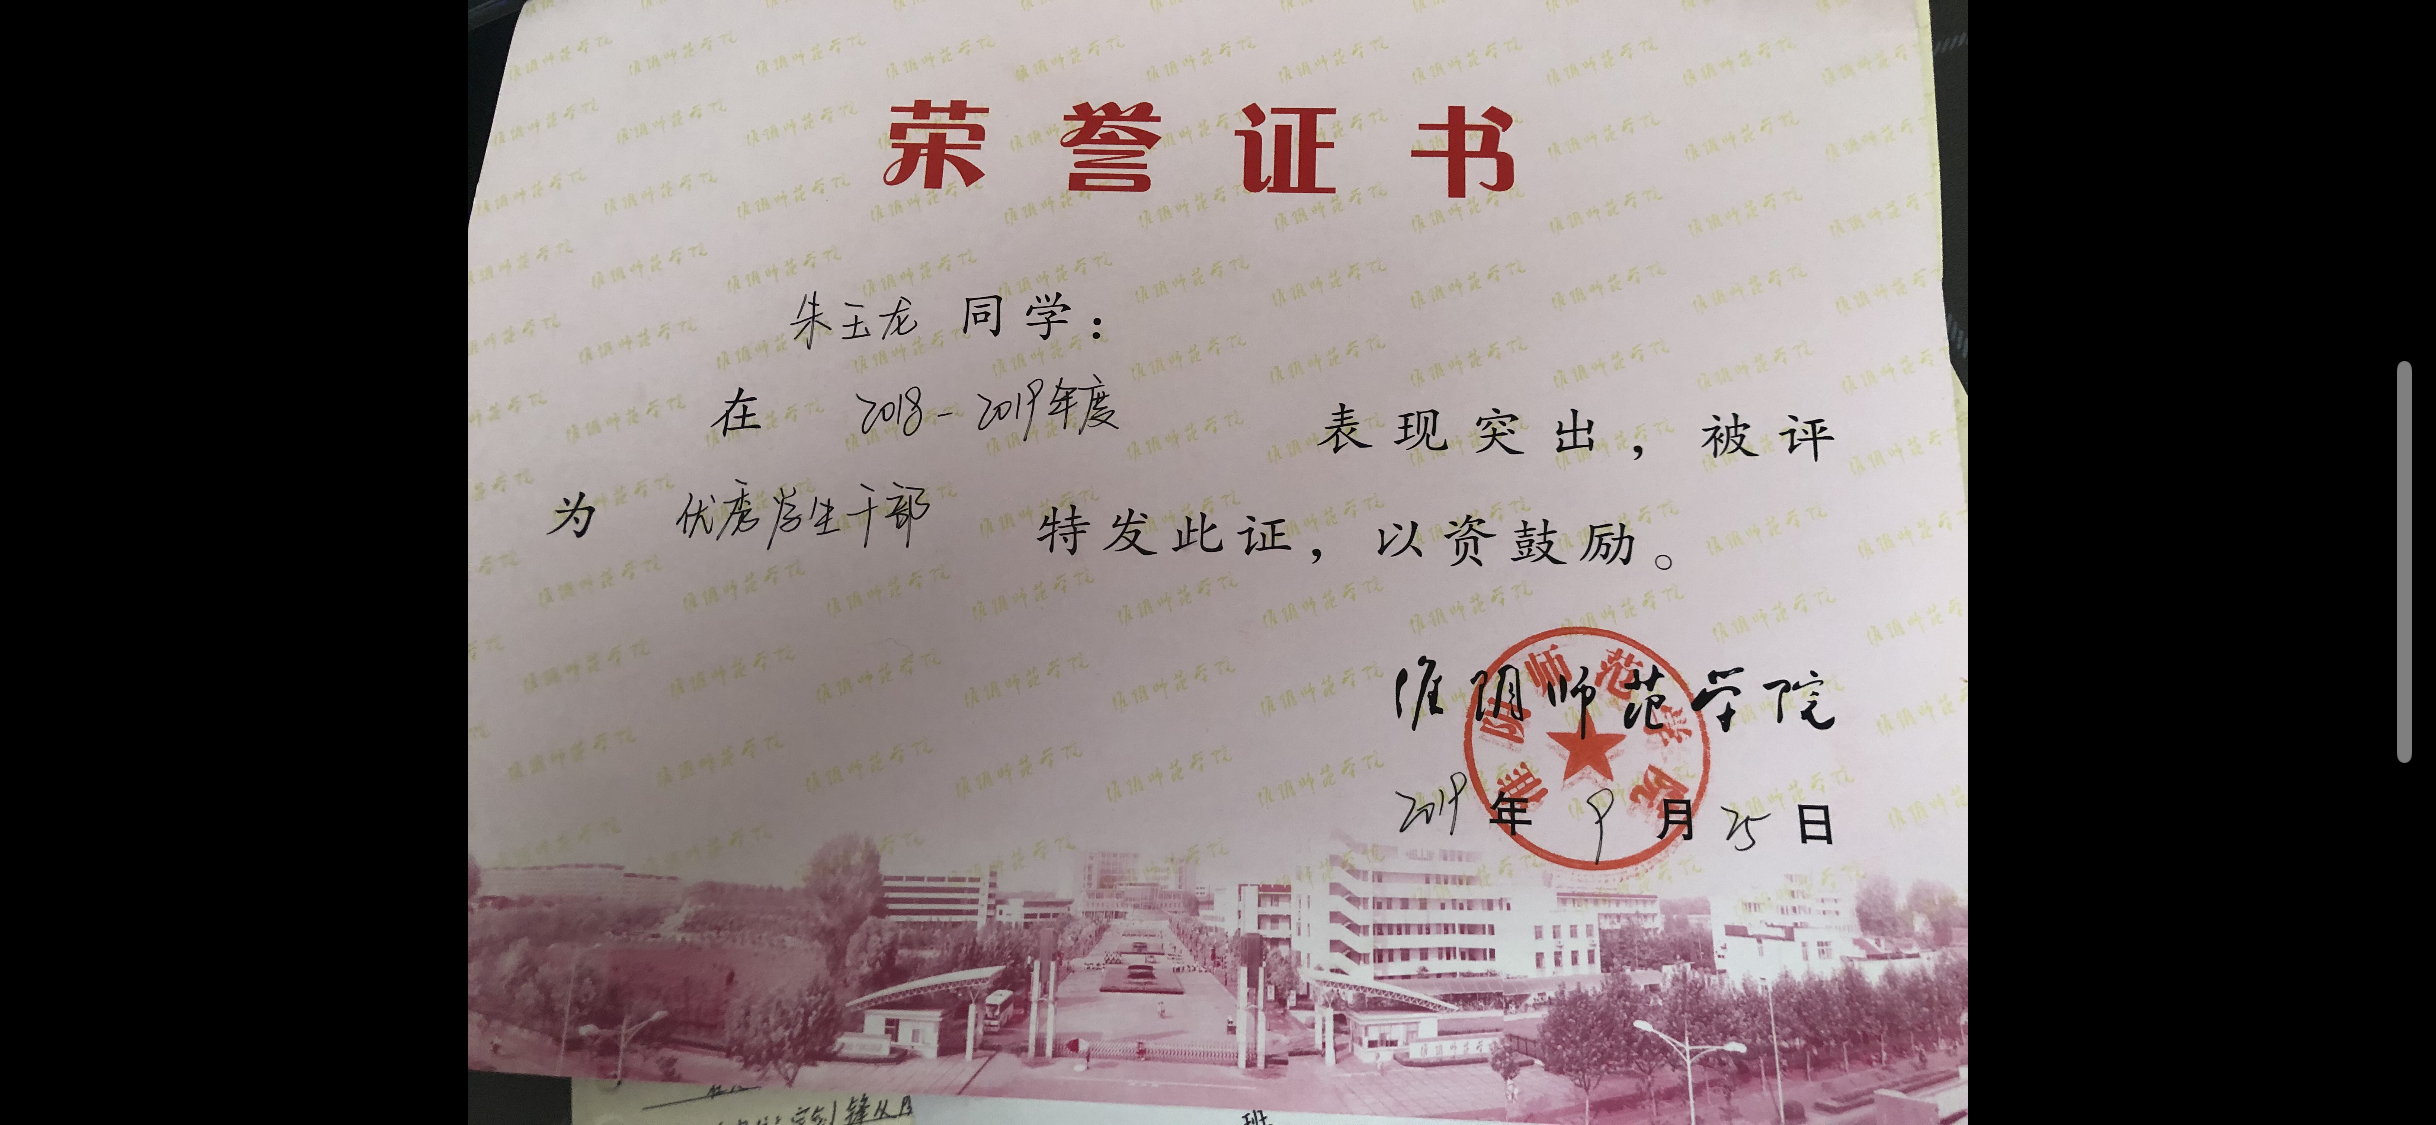 荣誉证书
朱玉龙同学：
在 2018-2019年度 表现突出，被评
为 优秀学生干部 特发此证，以资鼓励。
淮阴师范学院
淮阴师范学院
2019年9月25日
班